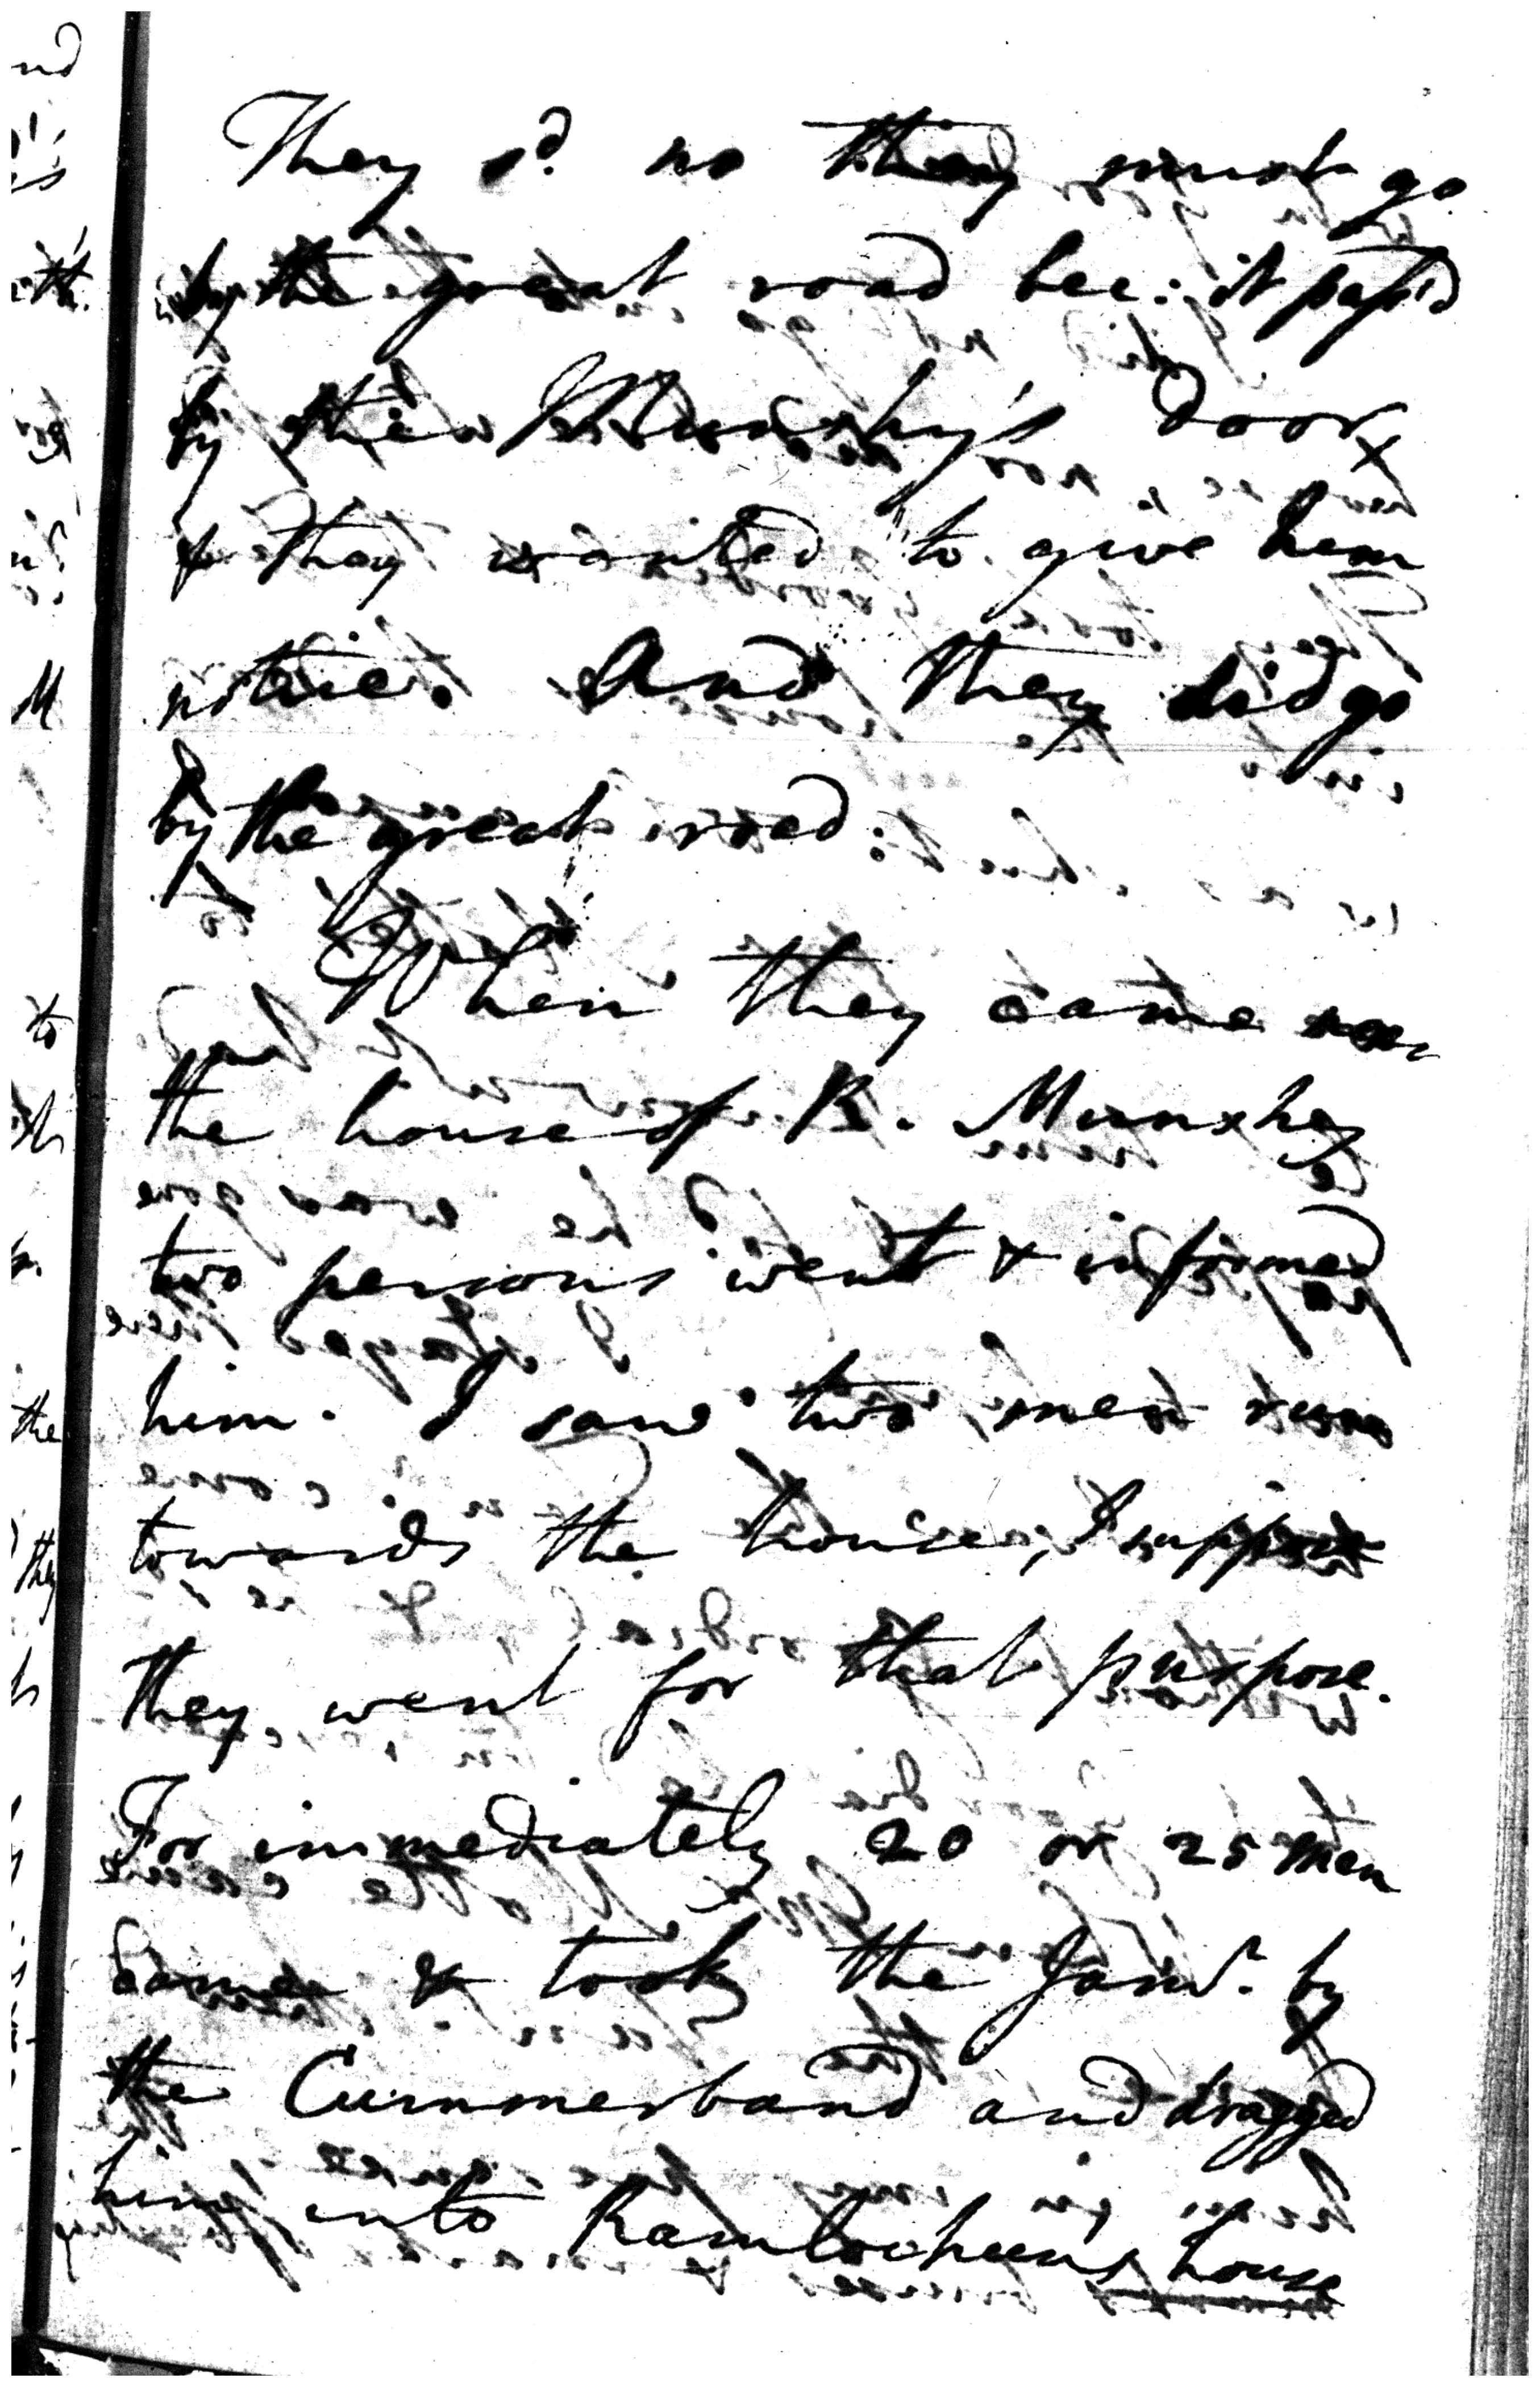 They sd. no they must go
by the great road bec: it pass'd
by the Munshy's door
& they wanted to give him
notice. And they did go
by the great road:
When they came near
the house of R. Munshy
two persons went & informed
him. I saw two men run
towards the house, I suppose
they went for that purpose.
For immediately 20 or 25 men
came & took the Jamr. by
the Cummerband and dragged
him into Ramlochuns house